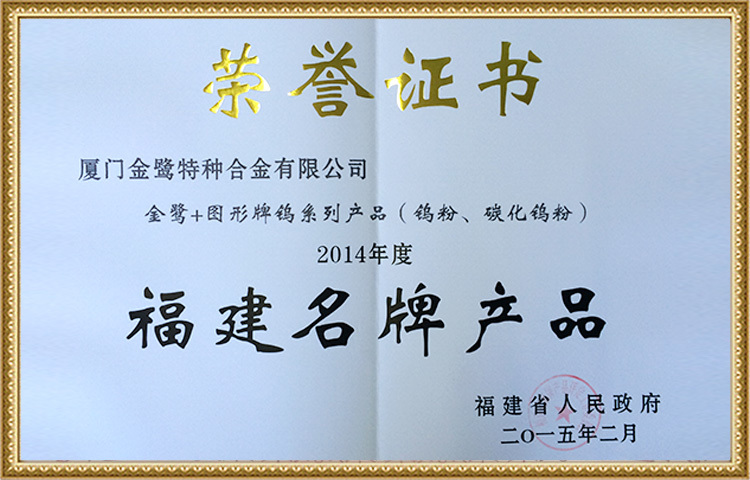 荣誉证书
厦门金鹭特种合金有限公司
金鹭+图形牌钨系列产品（钨粉、碳化钨粉）
2014年度
福建名牌产品
福建省人民政府
二〇一五年二月